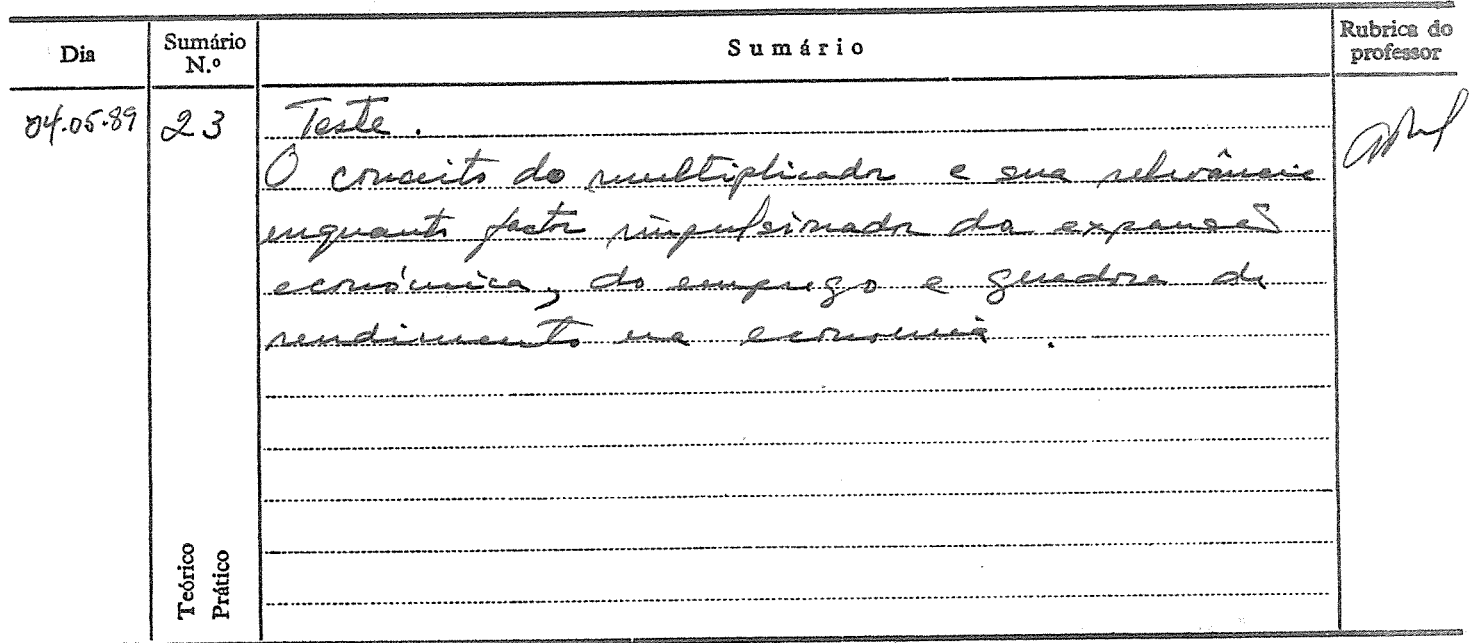 Dia
Sumário N.º
Sumário
Rubrica do professor
04.05.89 23 Teste.
O conceito do multiplicador e sua relevância
enquanto factor impulsionador da expansão
económica, do emprego e de
rendimento na economia.
Teórico
Prático